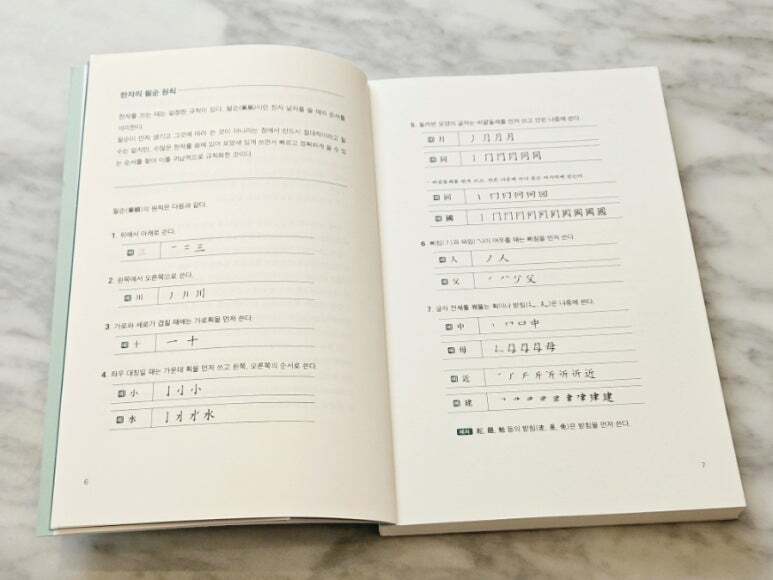 한자의 필순 원칙
한자를 쓰는 데는 일정한 규칙이 있다. 필순(筆順)이란 한자 낱자를 쓸 때의 순서를
의미한다.
필순이 먼저 생기고 그것에 따라 쓴 것이 아니라는 점에서 반드시 절대적이라고 할
수는 없지만, 수많은 한자를 쓰며 모양새 있게 쓰면서 빠르고 정확하게 쓸 수 있
는 순서를 찾아 이를 귀납적으로 규칙화한 것이다.
필순(筆順)의 원칙은 다음과 같다.
1. 위에서 아래로 쓴다.
예 三 一 二 三
2. 왼쪽에서 오른쪽으로 쓴다.
예 川 丿 丿丨 川
3. 가로와 세로가 겹칠 때에는 가로획을 먼저 쓴다.
예 十 一 十
4. 좌우 대칭일 때는 가운데 획을 먼저 쓰고 왼쪽, 오른쪽의 순서로 쓴다.
예 小 亅 小
예 水 亅 水
6
5. 둘러싼 모양의 글자는 바깥둘레를 먼저 쓰고 안은 나중에 쓴다.
예 月 丿 月
예 同 丨 冂 同
예 固 丨 冂 固
예 國 丨 冂 國
6. 삐침(丿)과 파임(乀)이 어우를 때는 삐침을 먼저 쓴다.
예 人 丿 人
예 父 父
7. 글자 전체를 꿰뚫는 획이나 받침(辶, 廴)은 나중에 쓴다.
예 中 丨 口 中
예 母 母
예 近 斤 近
예 建 建
예외 起, 題, 勉 등의 받침(走, 是, 免)은 받침을 먼저 쓴다.
7